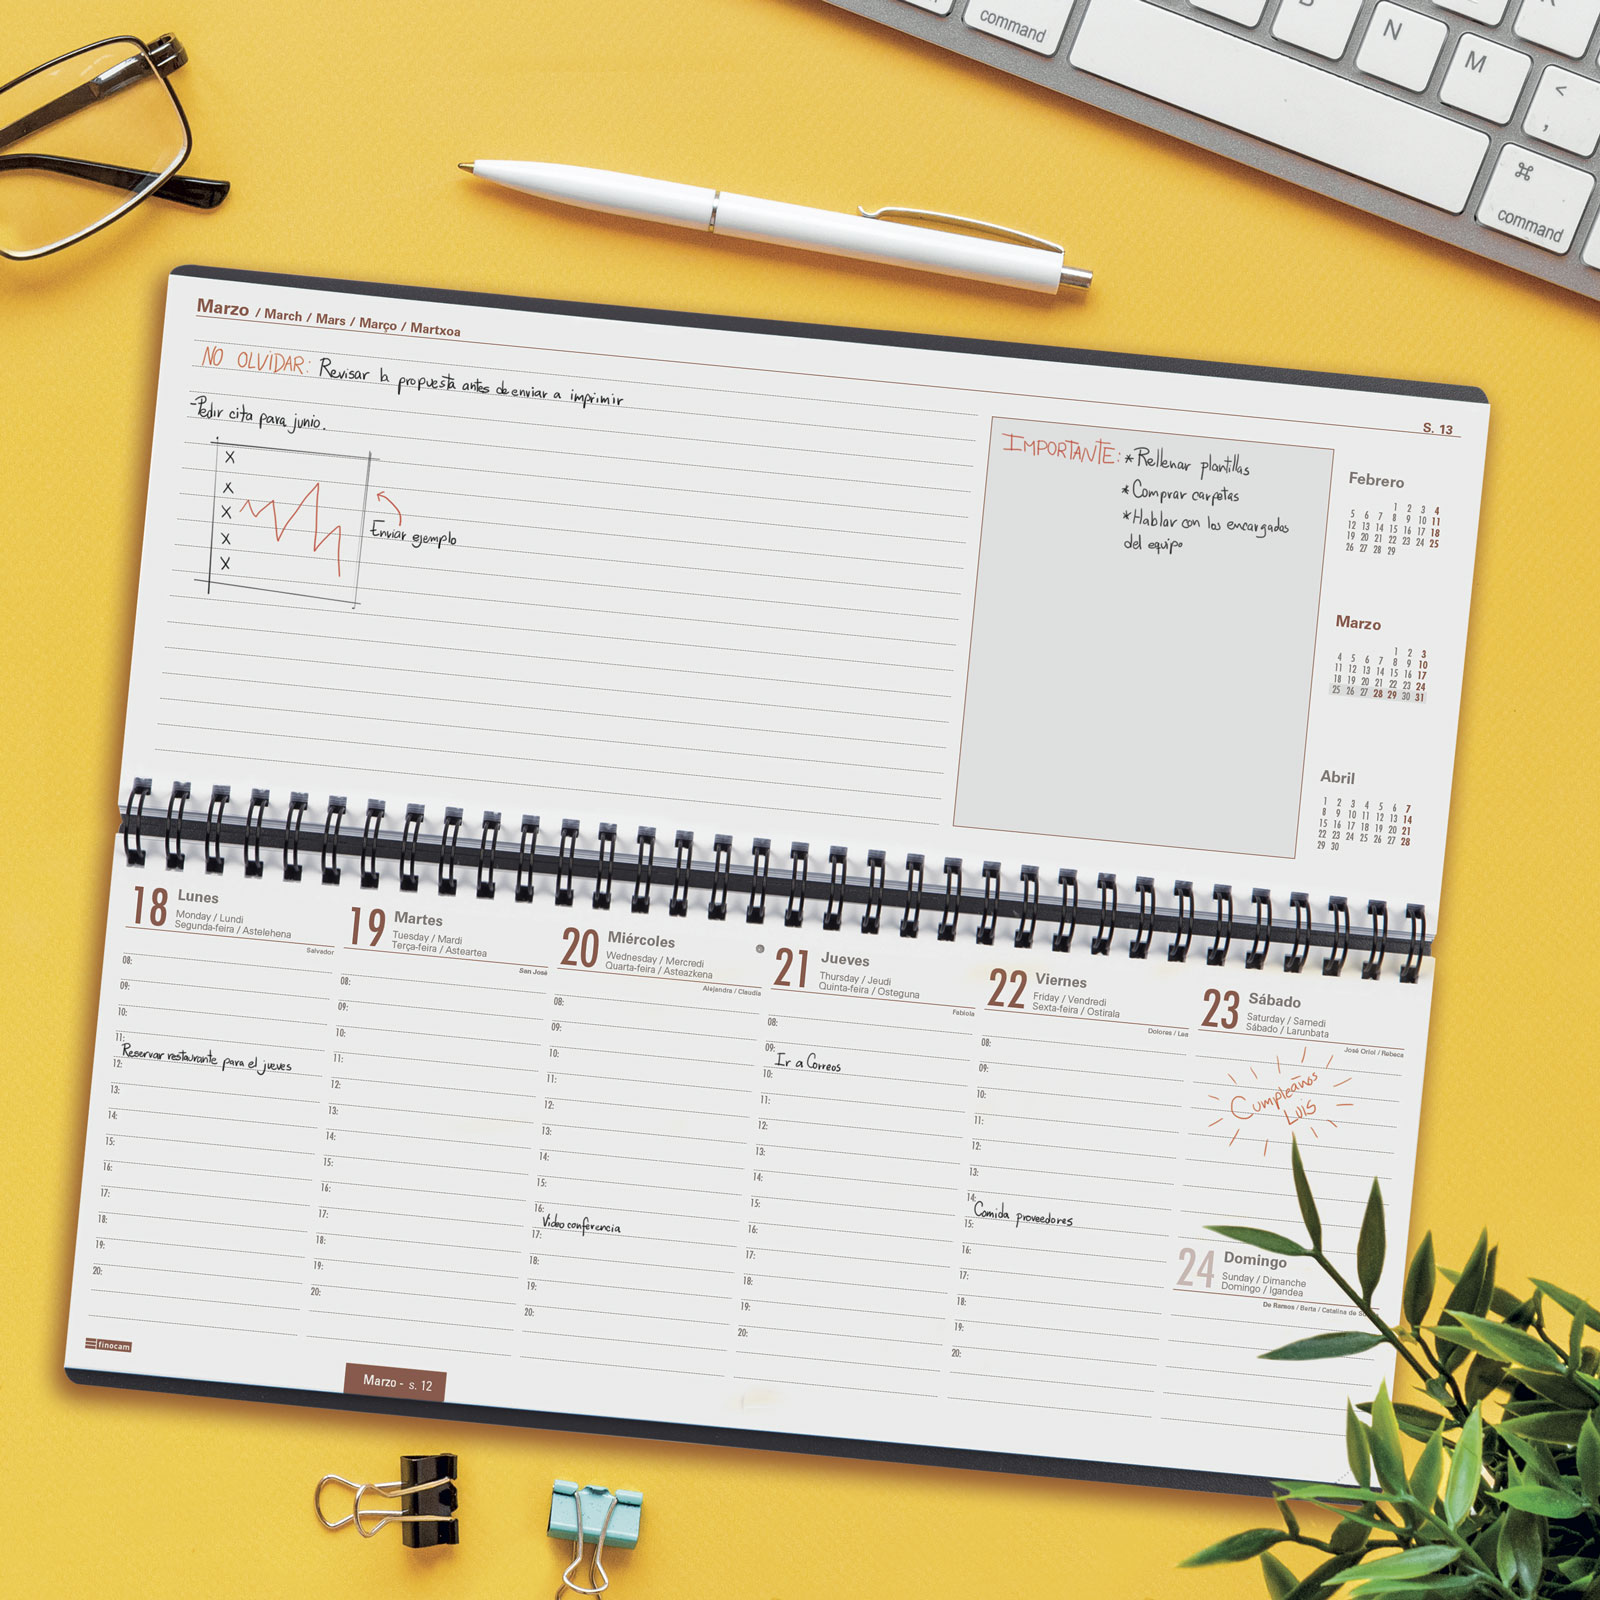 command
B
N
M
<
,
⌘
command
Marzo / March / Mars / Março / Martxoa
S. 13
NO OLVIDAR: Revisar la propuesta antes de enviar a imprimir
-Pedir cita para junio.
X
X
X
X
X
Enviar ejemplo
IMPORTANTE: *Rellenar plantillas
*Comprar carpetas
*Hablar con los encargados
del equipo
Febrero
1 2 3 4
5 6 7 8 9 10 11
12 13 14 15 16 17 18
19 20 21 22 23 24 25
26 27 28 29
Marzo
1 2 3
4 5 6 7 8 9 10
11 12 13 14 15 16 17
18 19 20 21 22 23 24
25 26 27 28 29 30 31
Abril
1 2 3 4 5 6 7
8 9 10 11 12 13 14
15 16 17 18 19 20 21
22 23 24 25 26 27 28
29 30
18 Lunes
Monday / Lundi
Segunda-feira / Astelehena
Salvador
08:
09:
10:
11:
Reservar restaurante para el jueves
12:
13:
14:
15:
16:
17:
18:
19:
20:
19 Martes
Tuesday / Mardi
Terça-feira / Asteartea
San José
08:
09:
10:
11:
12:
13:
14:
15:
16:
17:
18:
19:
20:
20 Miércoles
Wednesday / Mercredi
Quarta-feira / Asteazkena
Alejandra / Claudia
08:
09:
10:
11:
12:
13:
14:
15:
16:
Video conferencia
17:
18:
19:
20:
21 Jueves
Thursday / Jeudi
Quinta-feira / Osteguna
Fabiola
08:
09:
Ir a Correos
10:
11:
12:
13:
14:
15:
16:
17:
18:
19:
20:
22 Viernes
Friday / Vendredi
Sexta-feira / Ostirala
Dolores / Lea
08:
09:
10:
11:
12:
13:
14:
Comida proveedores
15:
16:
17:
18:
19:
20:
23 Sábado
Saturday / Samedi
Sábado / Larunbata
José Oriol / Rebeca
Cumpleaños
Luis
24 Domingo
Sunday / Dimanche
Domingo / Igandea
De Ramos / Berta / Catalina de
finocam
Marzo - s. 12